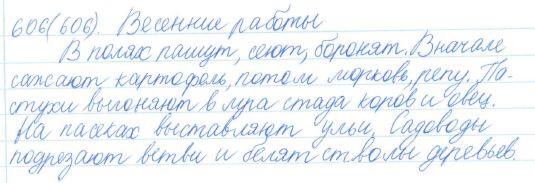 606(606). Весенние работы
В полях пашут, сеют, боронят. Вначале
сажают картофель, потом морковь, репу. Па-
стухи выгоняют в луга стада коров и овец.
На пасеках выставляют ульи. Садоводы
подрезают ветви и белят стволы деревьев.